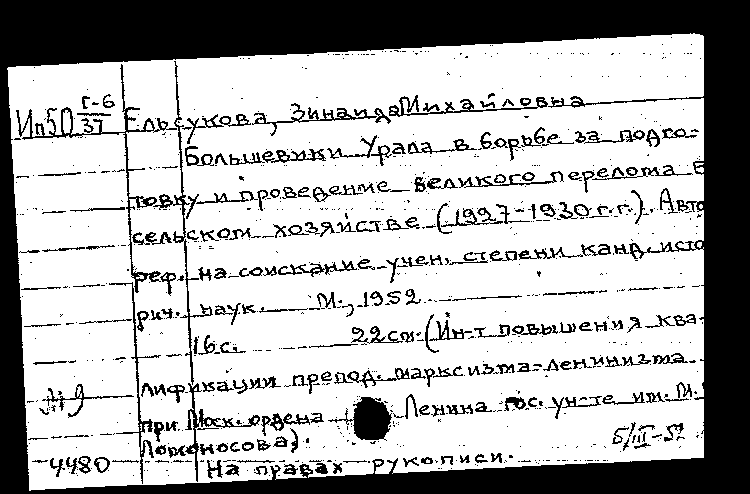 Ип50 Г-6/37 Ельсукова, Зинаида Михайловна
Большевики Урала в борьбе за подго-
товку и проведение великого перелома в
сельском хозяйстве (1927-1930 г.г.). Авто
реф. на соискание учен. степени канд. исто
рич. наук. М., 1952
16с. 22см. (Ин-т повышения ква-
лификации препод. марксизма-ленинизма
при Моск. ордена Ленина гос. ун-те им. М.
Ломоносова).
На правах рукописи.
4480
5/III-52